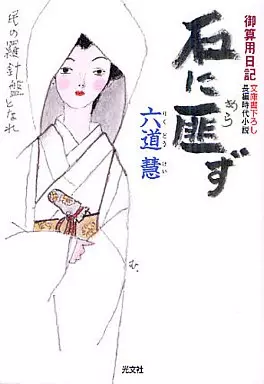 御算用日記
文庫書下ろし
長編時代小説
石に匪ず
あら
六道慧
りくどう けい
民の羅針盤となれ
む。
光文社